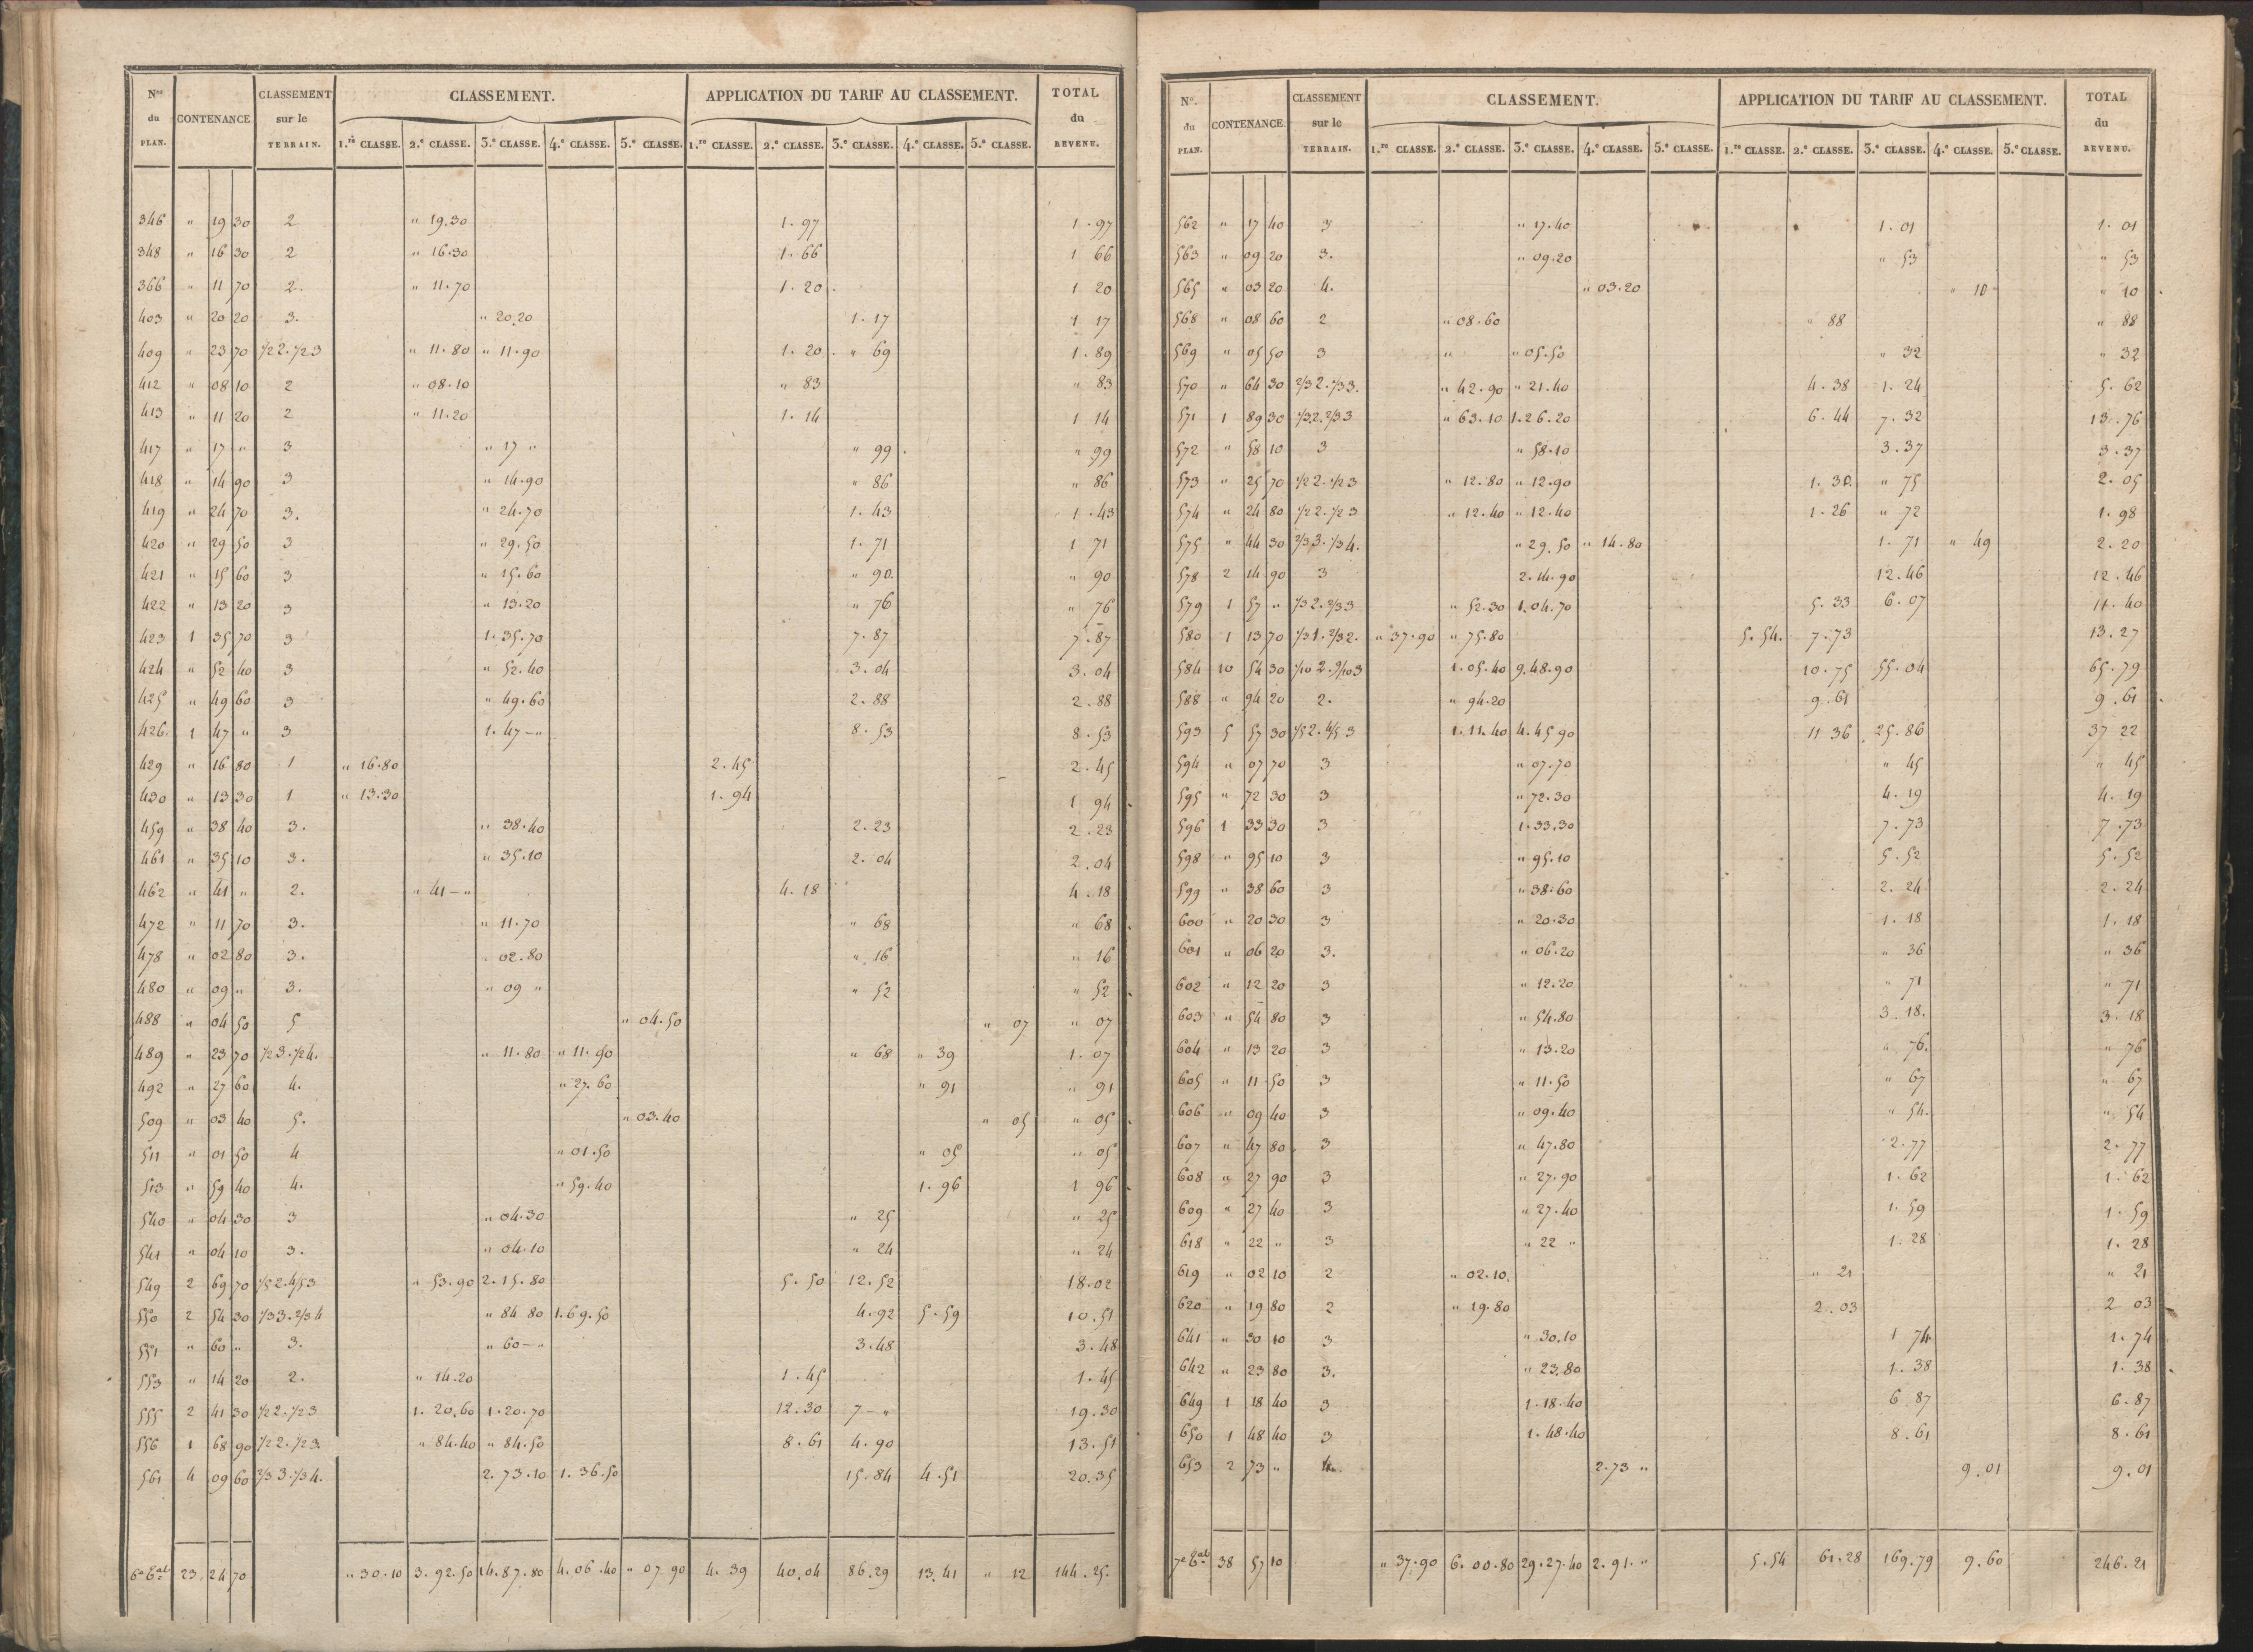 Nos du PLAN. CONTENANCE. CLASSEMENT sur le TERRAIN. CLASSEMENT. APPLICATION DU TARIF AU CLASSEMENT. TOTAL du REVENU.
1.re CLASSE. 2.e CLASSE. 3.e CLASSE. 4.e CLASSE. 5.e CLASSE. 1.re CLASSE. 2.e CLASSE. 3.e CLASSE. 4.e CLASSE. 5.e CLASSE.
346 " 19 30 2 " 19.30 1.97 1.97
348 " 16 30 2 " 16.30 1.66 1 66
366 " 11 70 2. " 11.70 1.20 1 20
403 " 20 20 3. " 20.20 1.17 1 17
409 " 23 70 1/2 2. 1/2 3 " 11.80 " 11.90 1.20 " 69 1.89
412 " 08 10 2 " 08.10 " 83 " 83
413 " 11 20 2 " 11.20 1.14 1 14
417 " 17 " 3 " 17 " " 99 " 99
418 " 14 90 3 " 14.90 " 86 " 86
419 " 24 70 3. " 24.70 1.43 1.43
420 " 29 50 3 " 29.50 1.71 1 71
421 " 15 60 3 " 15.60 " 90. " 90
422 " 13 20 3 " 13.20 " 76 " 76
423 1 35 70 3 1.35.70 7.87 7.87
424 " 52 40 3 " 52.40 3.04 3.04
425 " 49 60 3 " 49.60 2.88 2.88
426. 1 47 " 3 1.47 - " 8.53 8.53
429 " 16 80 1 " 16.80 2.45 2.45
430 " 13 30 1 " 13.30 1.94 1 94
459 " 38 40 3. " 38.40 2.23 2.23
461 " 35 10 3. " 35.10 2.04 2.04
462 " 41 " 2. " 41 - " 4.18 4.18
472 " 11 70 3. " 11.70 " 68 " 68
478 " 02 80 3. " 02.80 " 16 " 16
480 " 09 " 3. " 09 " " 52 " 52
488 " 04 50 5 " 04.50 " 07 " 07
489 " 23 70 1/2 3. 1/2 4. " 11.80 " 11.90 " 68 " 39 1.07
492 " 27 60 4. " 27.60 " 91 " 91
509 " 03 40 5. " 03.40 " 05 " 05
511 " 01 50 4 " 01.50 " 05 " 05
513 " 59 40 4. " 59.40 1.96 1 96
540 " 04 30 3 " 04.30 " 25 " 25
541 " 04 10 3. " 04.10 " 24 " 24
549 2 69 70 1/5 2. 4/5 3 " 53.90 2.15.80 5.50 12.52 18.02
550 2 54 30 1/3 3. 2/3 4 " 84 80 1.69.50 4.92 5.59 10.51
551 " 60 " 3. " 60 - " 3.48 3.48
553 " 14 20 2. " 14.20 1.45 1.45
555 2 41 30 1/2 2. 1/2 3 1.20.60 1.20.70 12.30 7 - " 19.30
556 1 68 90 1/2 2. 1/2 3. " 84.40 " 84.50 8.61 4.90 13.51
561 4 09 60 2/3 3. 1/3 4. 2.73.10 1.36.50 15.84 4.51 20.35
6e Etal 23. 24 70 " 30.10 3.92.50 14.87.80 4.06.40 " 07 90 4.39 40.04 86.29 13.41 " 12 144.25.
No. du PLAN. CONTENANCE. CLASSEMENT sur le TERRAIN. CLASSEMENT. APPLICATION DU TARIF AU CLASSEMENT. TOTAL du REVENU.
1.re CLASSE. 2.e CLASSE. 3.e CLASSE. 4.e CLASSE. 5.e CLASSE. 1.re CLASSE. 2.e CLASSE. 3.e CLASSE. 4.e CLASSE. 5.e CLASSE.
562 " 17 40 3 " 17.40 1.01 1.01
563 " 09 20 3. " 09.20 " 53 " 53
565 " 03 20 4. " 03.20 " 10 " 10
568 " 08 60 2 " 08.60 " 88 " 88
569 " 05 50 3 " " 05.50 " 32 " 32
570 " 64 30 2/3 2. 1/3 3. " 42.90 " 21.40 4.38 1.24 5.62
571 1 89 30 1/3 2. 2/3 3 " 63.10 1.26.20 6.44 7.32 13.76
572 " 58 10 3 " 58.10 3.37 3.37
573 " 25 70 1/2 2. 1/2 3 " 12.80 " 12.90 1.30. " 75 2.05
574 " 24 80 1/2 2. 1/2 3 " 12.40 " 12.40 1.26 " 72 1.98
575 " 44 30 2/3 3. 1/3 4. " 29.50 " 14.80 1.71 " 49 2.20
578 2 14 90 3 2.14.90 12.46 12.46
579 1 57 " 1/3 2. 2/3 3 " 52.30 1.04.70 5.33 6.07 11.40
580 1 13 70 1/3 1. 2/3 2. " 37.90 " 75.80 5.54. 7.73 13.27
584 10 54 30 1/10 2. 9/10 3 1.05.40 9.48.90 10.75 55.04 65.79
588 " 94 20 2. " 94.20 9.61 9.61
593 5 57 30 1/5 2. 4/5 3 1.11.40 4.45 90 11 36 25.86 37 22
594 " 07 70 3 " 07.70 " 45 " 45
595 " 72 30 3 " 72.30 4.19 4.19
596 1 33 30 3 1.33.30 7.73 7.73
598 " 95 10 3 " 95.10 5.52 5.52
599 " 38 60 3 " 38.60 2.24 2.24
600 " 20 30 3 " 20.30 1.18 1.18
601 " 06 20 3. " 06.20 " 36 " 36
602 " 12 20 3 " 12.20 " 71 " 71
603 " 54 80 3 " 54.80 3.18. 3.18
604 " 13 20 3 " 13.20 " 76. " 76
605 " 11 50 3 " 11.50 " 67 " 67
606 " 09 40 3 " 09.40 " 54. " 54
607 " 47 80 3 " 47.80 2.77 2.77
608 " 27 90 3 " 27.90 1.62 1.62
609 " 27 40 3 " 27.40 1.59 1.59
618 " 22 " 3 " 22 " 1.28 1.28
619 " 02 10 2 " 02.10. " 21 " 21
620 " 19 80 2 " 19.80 2.03 2 03
641 " 30 10 3 " 30.10 1 74 1.74
642 " 23 80 3. " 23.80 1.38 1.38
649 1 18 40 3 1.18.40 6 87 6.87
650 1 48 40 3 1.48.40 8.61 8.61
653 2 73 " 4. 2.73 " 9.01 9.01
7e Etal 38 57 10 " 37.90 6.00.80 29.27.40 2.91. " 5.54 61.28 169.79 9.60 246.21